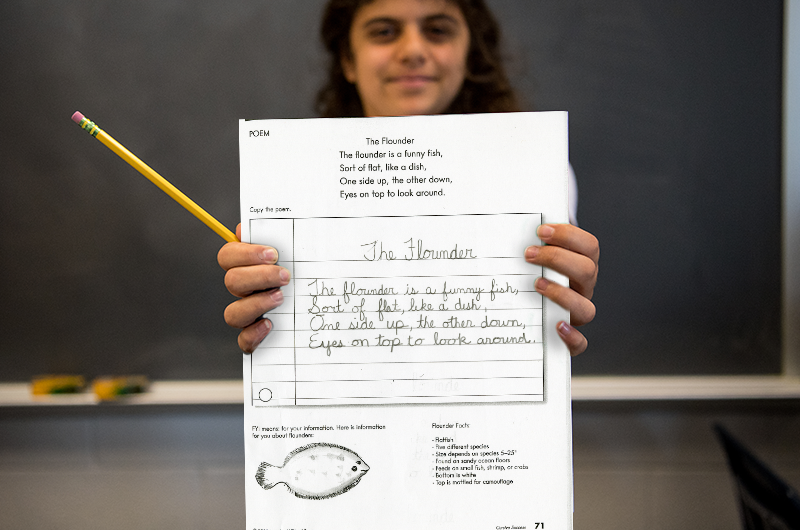 POEM
The Flounder
The flounder is a funny fish,
Sort of flat, like a dish,
One side up, the other down,
Eyes on top to look around.
Copy the poem.
The Flounder
The flounder is a funny fish,
Sort of flat, like a dish,
One side up, the other down,
Eyes on top to look around.
FYI means: for your information. Here is information
for you about flounders:
Flounder Facts
- Flatfish
- Five different species
- Size depends on species 5-25"
- Found on sandy ocean floors
- Feeds on small fish, shrimp, or crabs
- Bottom is white
- Top is mottled for camouflage
71